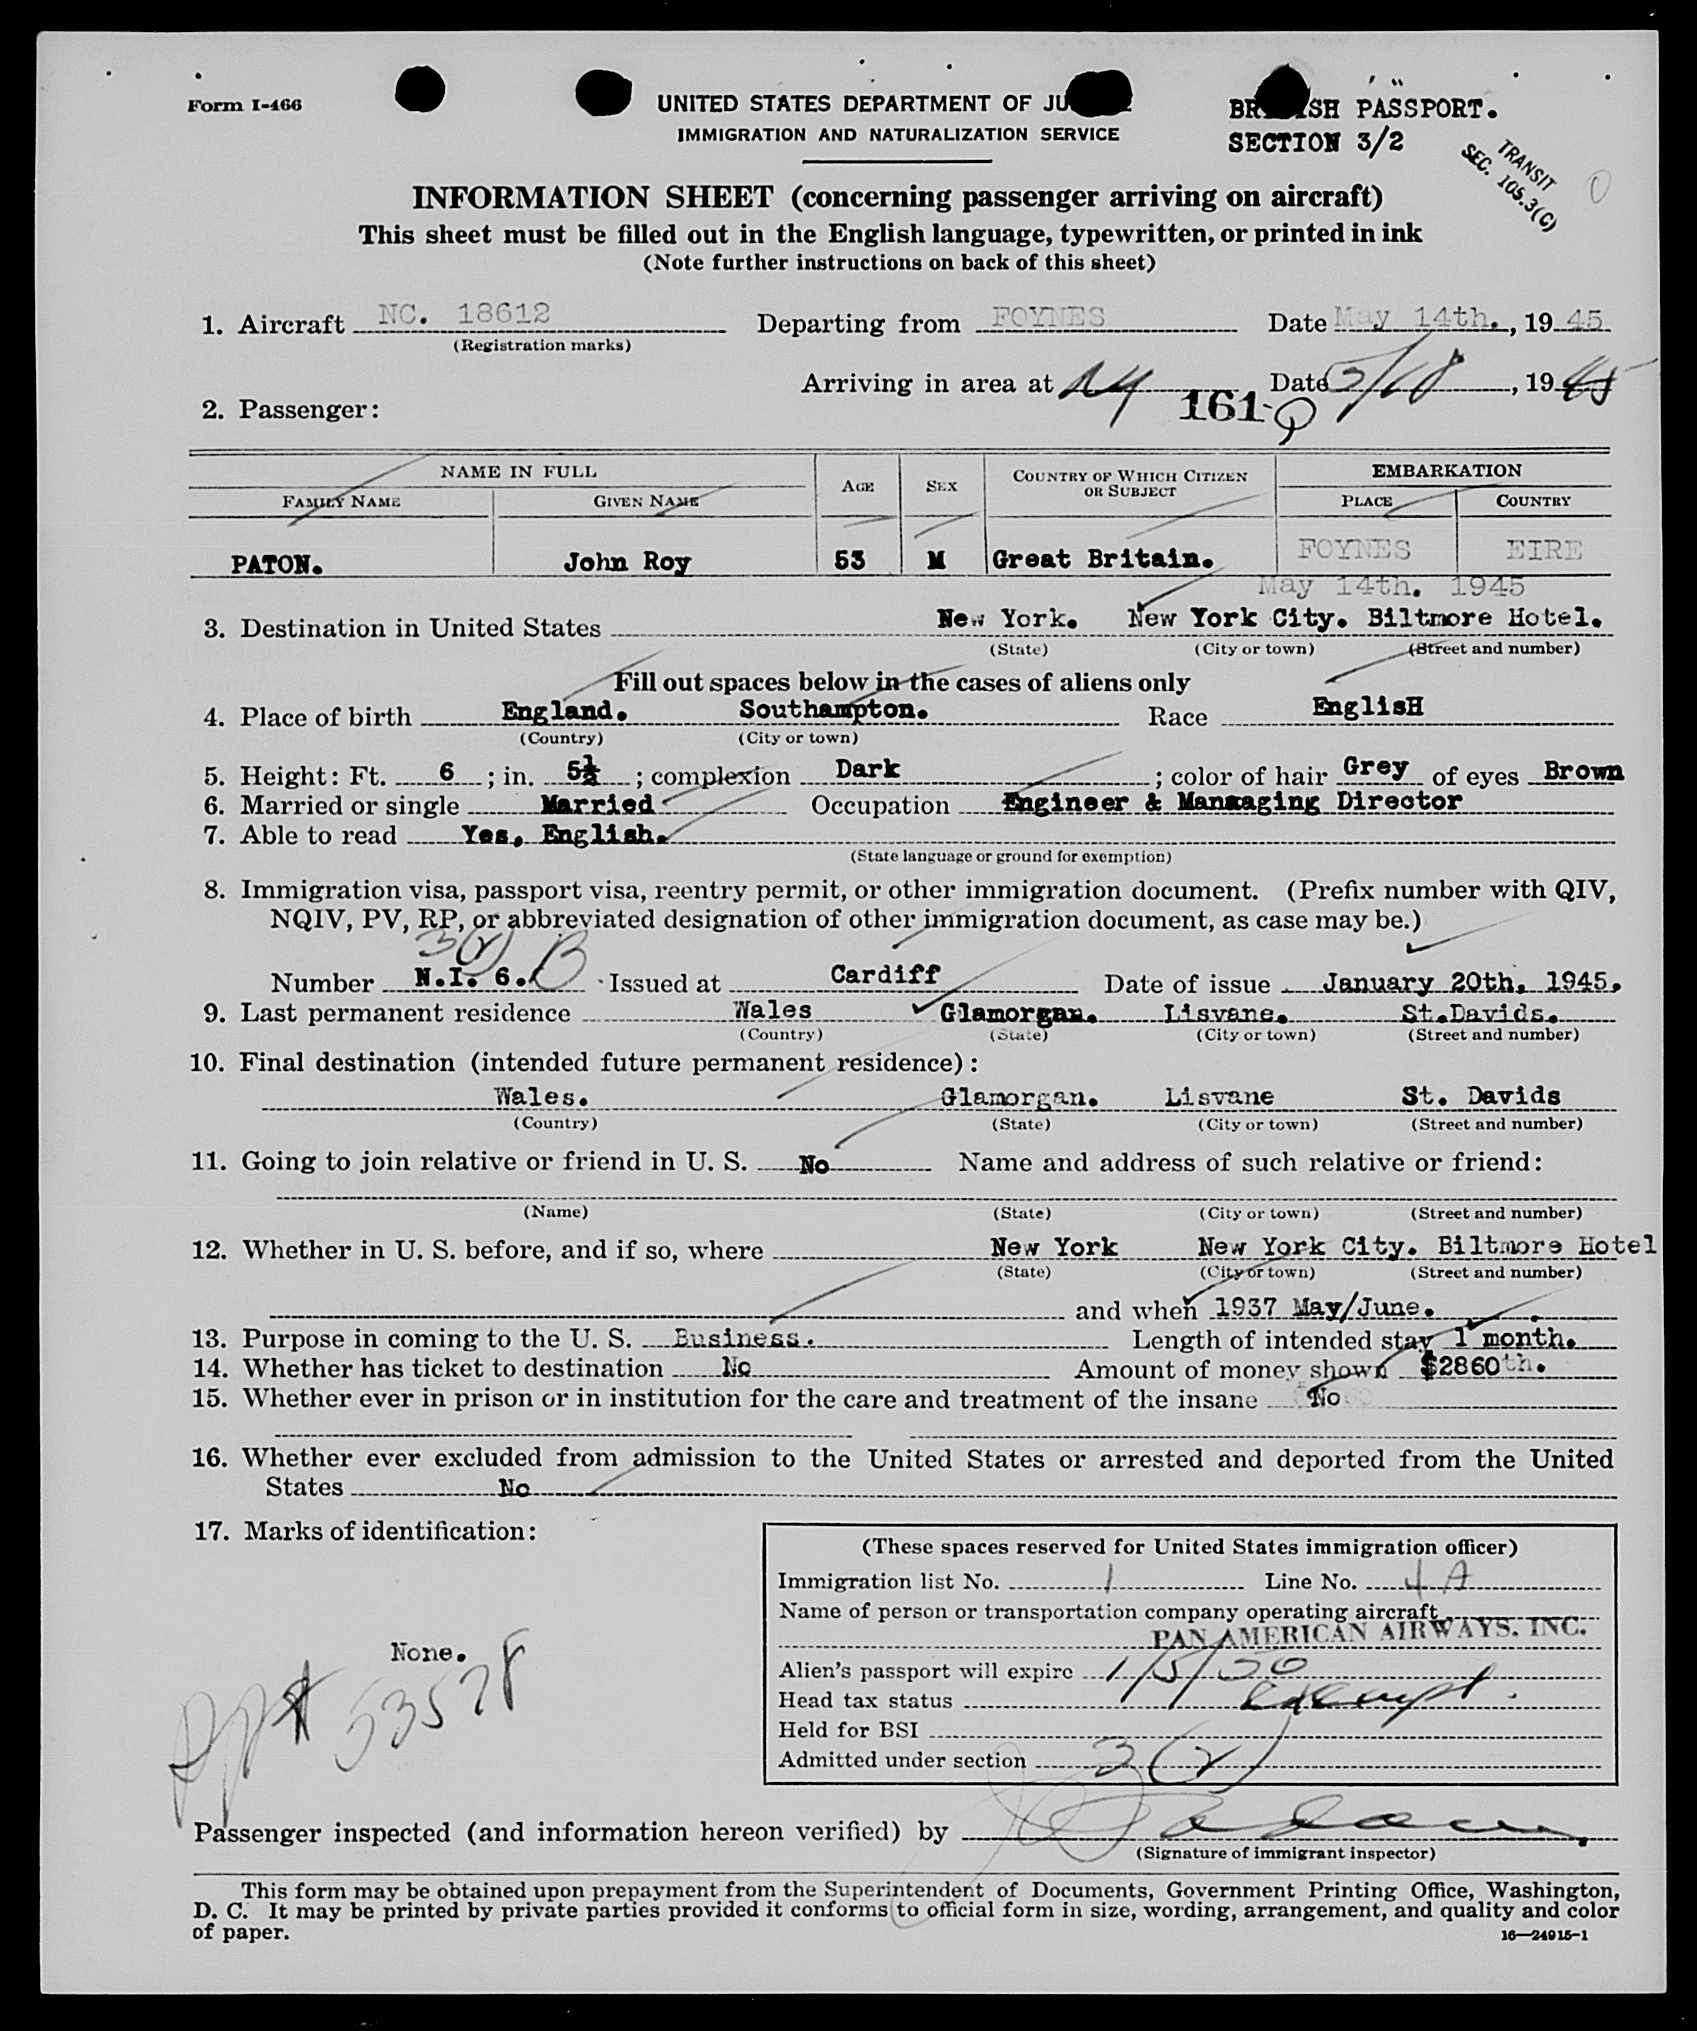 Form I-466
UNITED STATES DEPARTMENT OF JU
IMMIGRATION AND NATURALIZATION SERVICE
BR SH PASSPORT.
SECTION 3/2
TRANSIT
SEC. 105.3(C)
INFORMATION SHEET (concerning passenger arriving on aircraft)
This sheet must be filled out in the English language, typewritten, or printed in ink
(Note further instructions on back of this sheet)
1. Aircraft NC. 18612 Departing from FOYNES Date May 14th., 19 45
(Registration marks)
Arriving in area at NY Date 5/18, 19 45
161-Q
2. Passenger:
NAME IN FULL AGE SEX COUNTRY OF WHICH CITIZEN OR SUBJECT EMBARKATION
FAMILY NAME GIVEN NAME PLACE COUNTRY
PATON. John Roy 53 M Great Britain. FOYNES EIRE
May 14th. 1945
3. Destination in United States New York. New York City. Biltmore Hotel.
(State) (City or town) (Street and number)
Fill out spaces below in the cases of aliens only
4. Place of birth England. Southampton. Race EnglisH
(Country) (City or town)
5. Height: Ft. 6 ; in. 5½ ; complexion Dark ; color of hair Grey of eyes Brown
6. Married or single Married Occupation Engineer & Manaaging Director
7. Able to read Yes, English.
(State language or ground for exemption)
8. Immigration visa, passport visa, reentry permit, or other immigration document. (Prefix number with QIV,
NQIV, PV, RP, or abbreviated designation of other immigration document, as case may be.)
3(2) B
Number N.I. 6. Issued at Cardiff Date of issue January 20th, 1945.
9. Last permanent residence Wales Glamorgan. Lisvane. St.Davids.
(Country) (State) (City or town) (Street and number)
10. Final destination (intended future permanent residence):
Wales. Glamorgan. Lisvane St. Davids
(Country) (State) (City or town) (Street and number)
11. Going to join relative or friend in U. S. No Name and address of such relative or friend:
(Name) (State) (City or town) (Street and number)
12. Whether in U. S. before, and if so, where New York New York City. Biltmore Hotel
(State) (City or town) (Street and number)
and when 1937 May/June.
13. Purpose in coming to the U. S. Business. Length of intended stay 1 month.
14. Whether has ticket to destination No Amount of money shown $2860th.
15. Whether ever in prison or in institution for the care and treatment of the insane No
16. Whether ever excluded from admission to the United States or arrested and deported from the United
States No
17. Marks of identification:
None.
ppt 53578
(These spaces reserved for United States immigration officer)
Immigration list No. 1 Line No. 4 A
Name of person or transportation company operating aircraft
PAN AMERICAN AIRWAYS. INC.
Alien's passport will expire 1/5/50
Head tax status exempt.
Held for BSI
Admitted under section 3(2)
Passenger inspected (and information hereon verified) by
(Signature of immigrant inspector)
This form may be obtained upon prepayment from the Superintendent of Documents, Government Printing Office, Washington,
D. C. It may be printed by private parties provided it conforms to official form in size, wording, arrangement, and quality and color
of paper.
16—24915-1